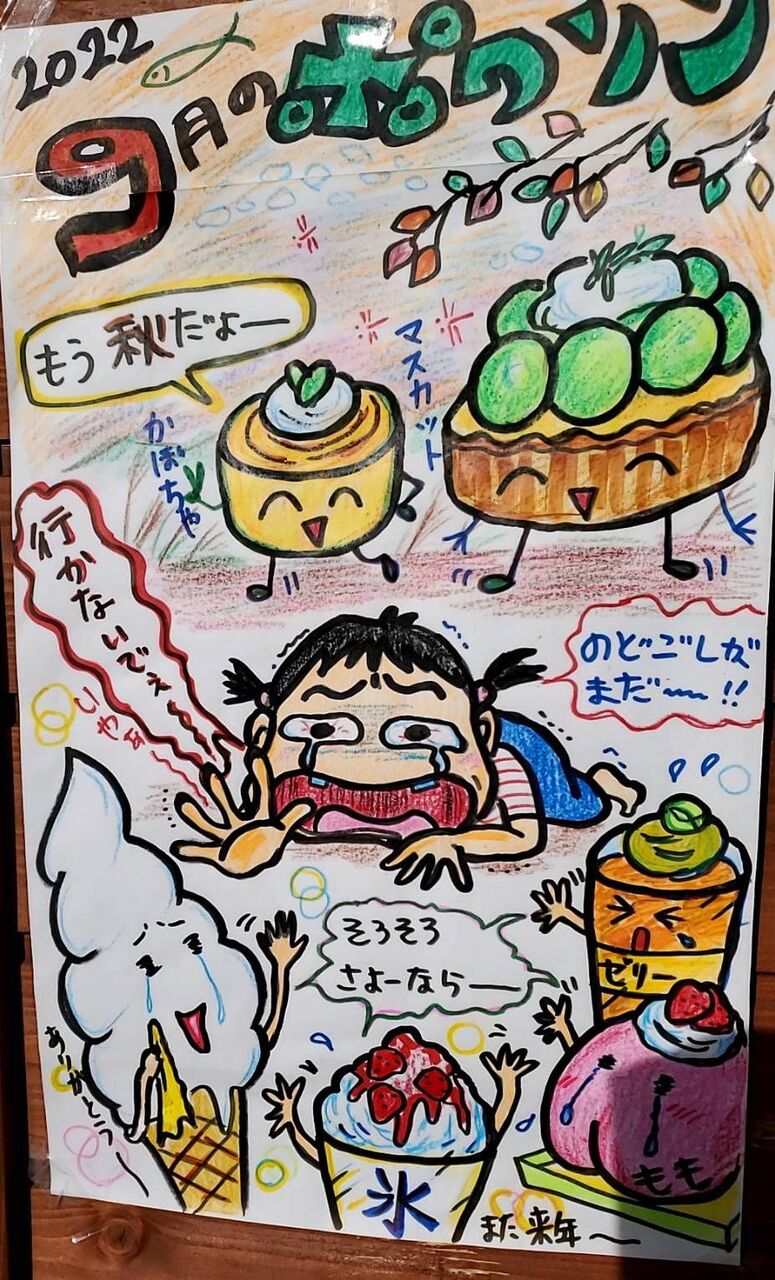 2022
9月のポワソン
もう秋だよー
マスカット
かぼちゃ
行かないでぇ〜
いやぁ〜
のどごしが
まだ〜!!
そろそろ
さよーならー
ゼリー
ありがとうー
氷
もも
また来年〜